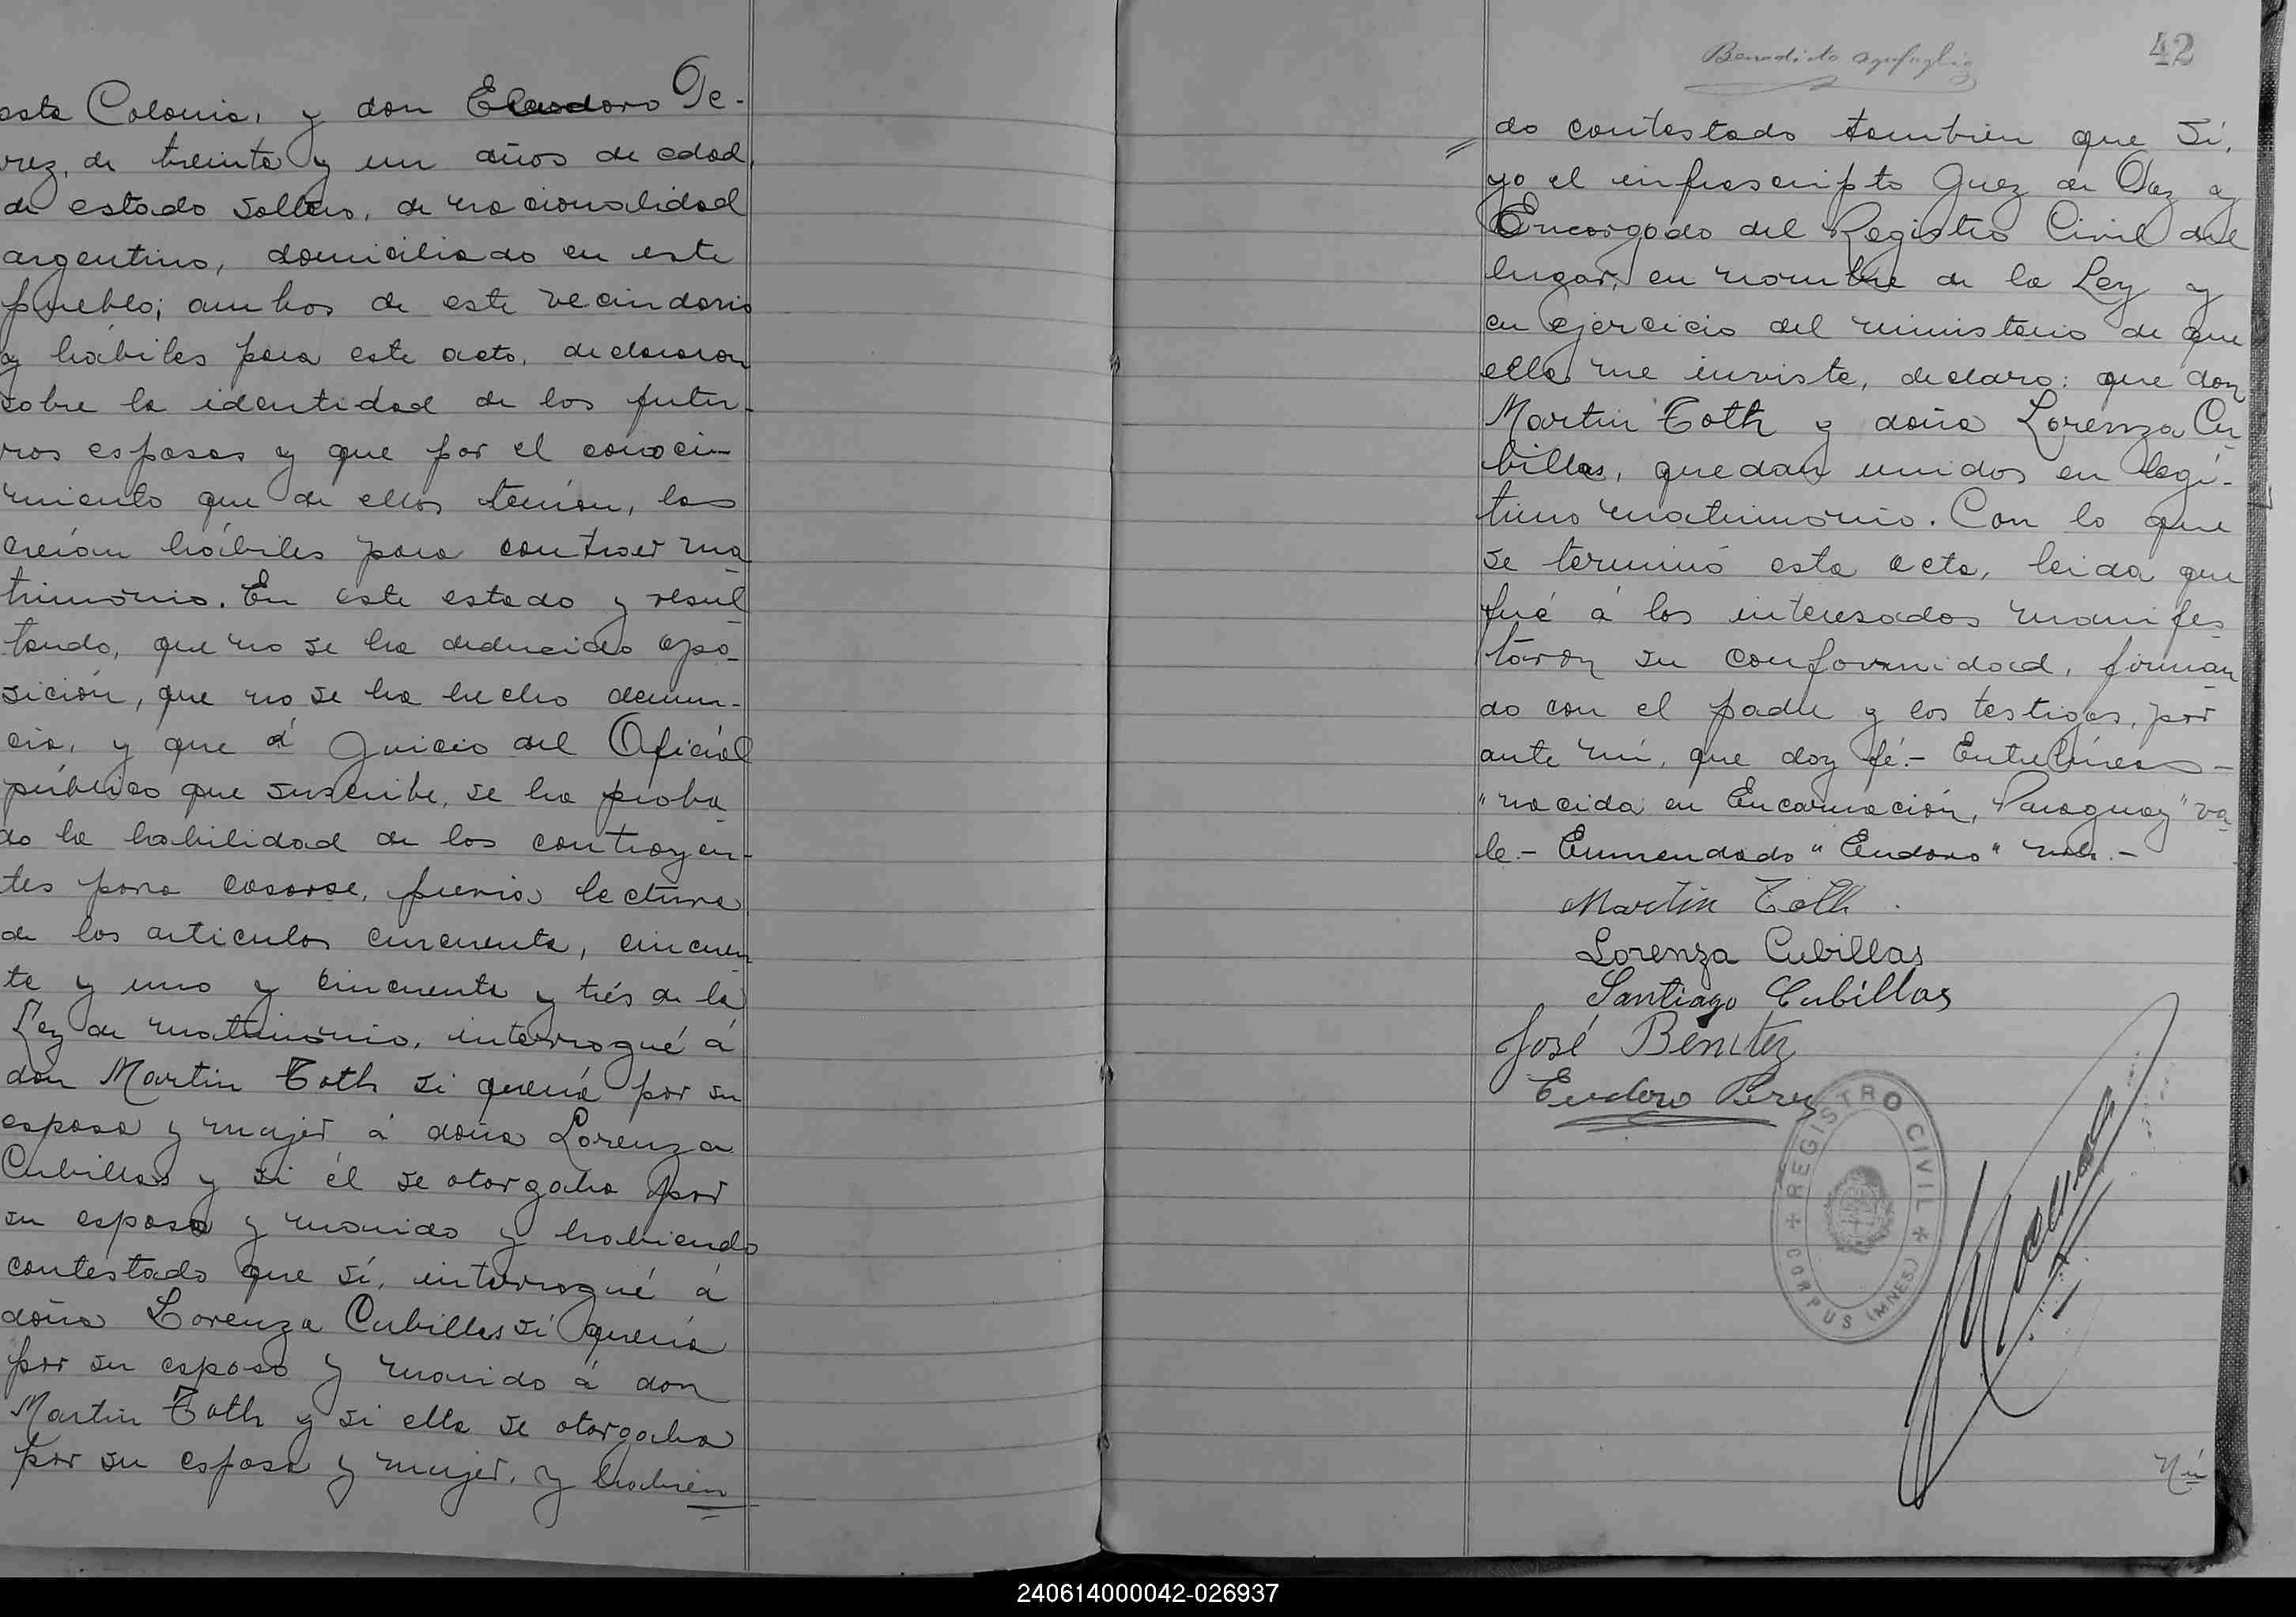 esta Colonia, y don Eudoro Pe-
rez, de treinta y un años de edad,
de estado soltero, de nacionalidad
argentino, domiciliado en este
pueblo; ambos de este vecindario
y hábiles para este acto, declararon
sobre la identidad de los futu-
ros esposos y que por el conoci-
miento que de ellos tenían, los
creían hábiles para contraer ma
trimonio. En este estado y resul
tando, que no se ha deducido opo-
sición, que no se ha hecho denun-
cia, y que á juicio del Oficial
público que suscribe, se ha proba
do la habilidad de los contrayen-
tes para casarse, previa lectura
de los articulos cincuenta, cincuen
ta y uno y cincuenta y trés de la
Ley de matrimonio, interrogué á
don Martin Toth si quería por su
esposa y mujer á doña Lorenza
Cubillas y si él se otorgaba por
su esposo y marido y habiendo
contestado que sí, interrogué á
doña Lorenza Cubillas si quería
por su esposo y marido á don
Martin Toth y si ella se otorgaba
por su esposa y mujer, y habien
42
Benedicto
do contestado tambien que sí,
yo el infrascripto Juez de Paz y
Encargado del Registro Civil del
lugar, en nombre de la Ley y
en ejercicio del ministerio de que
ella me inviste, declaro: que don
Martin Toth y doña Lorenza Cu
billas, quedan unidos en legí-
timo matrimonio. Con lo que
se terminó esta acta, leida que
fué á los interesados manifes
táron su conformidad, firman
do con el padre y los testigos, por
ante mí, que doy fé.- Entrelíneas-
"nacida en Encarnación, Paraguay" va
le.- Enmendado "Eudoro" vale.-
Martin Toth.
Lorenza Cubillas
Santiago Cubillas
José Benitez
Eudoro Perez
REGISTRO CIVIL
CORPUS (MNES.)
Nú
240614000042-026937